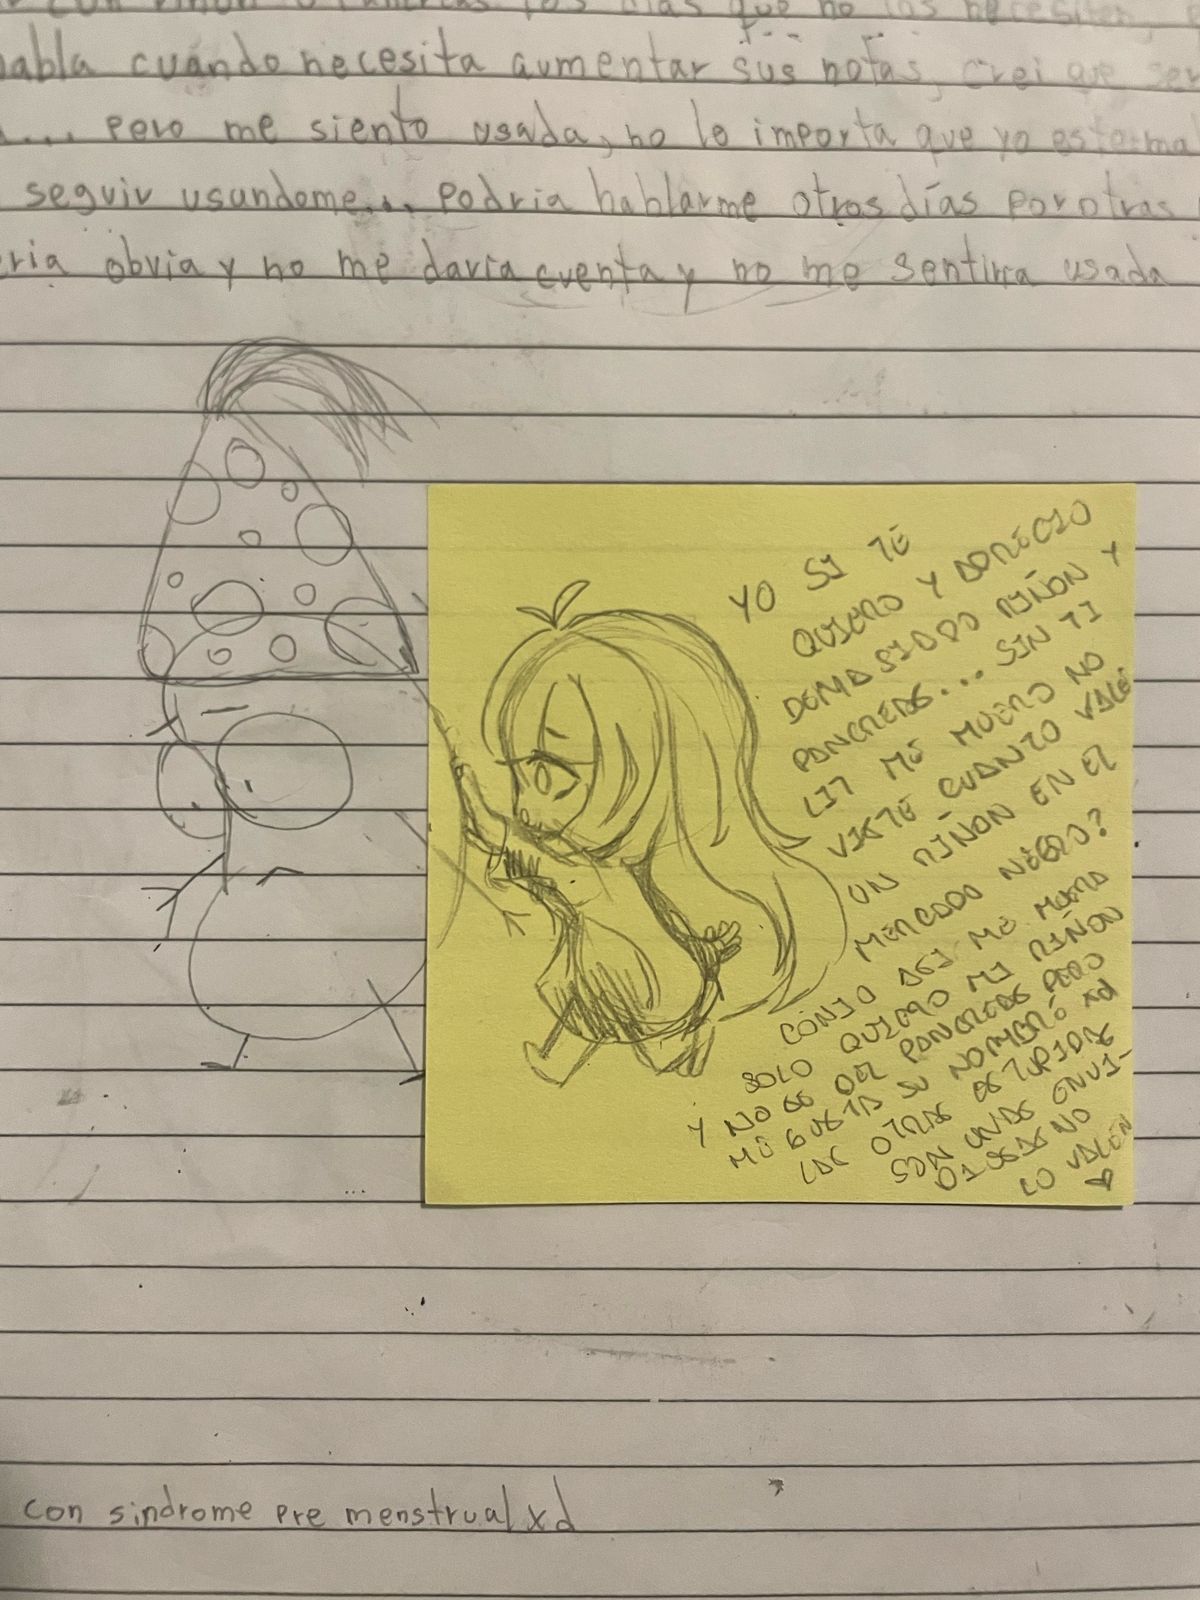 con riñon o pancreas los dias que no los necesiten,
habla cuándo necesita aumentar sus notas, crei que ser
... pero me siento usada, no le importa que yo este mal
seguir usandome... podria hablarme otros días por otras
eria obvia y no me daria cuenta y no me sentiria usada
YO SI TE
QUIERO Y APRECIO
DEMASIADO RIÑON Y
PANCREAS... SIN TI
LIT ME MUERO NO
VISTE CUANTO VALE
UN RIÑON EN EL
MERCADO NEGRO?
CONIO ASI ME MUERO
SOLO QUIERO MI RIÑON
Y NO SE DEL PANCREAS PERO
ME GUSTA SU NOMBRE xd
LAS OTRAS ESTUPIDAS
SON UNAS ENVI-
DIOSAS NO
LO VALEN
con sindrome pre menstrual xd